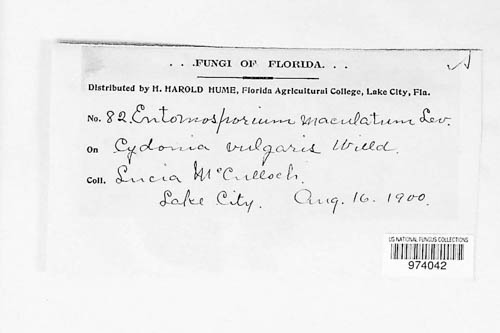 . . .FUNGI OF FLORIDA. . .
Distributed by H. HAROLD HUME, Florida Agricultural College, Lake City, Fla.
No. 82. Entomosporium maculatum Lev.
On Cydonia vulgaris Willd.
Coll. Lucia McCulloch.
Lake City. Aug. 16. 1900.
US NATIONAL FUNGUS COLLECTIONS
974042